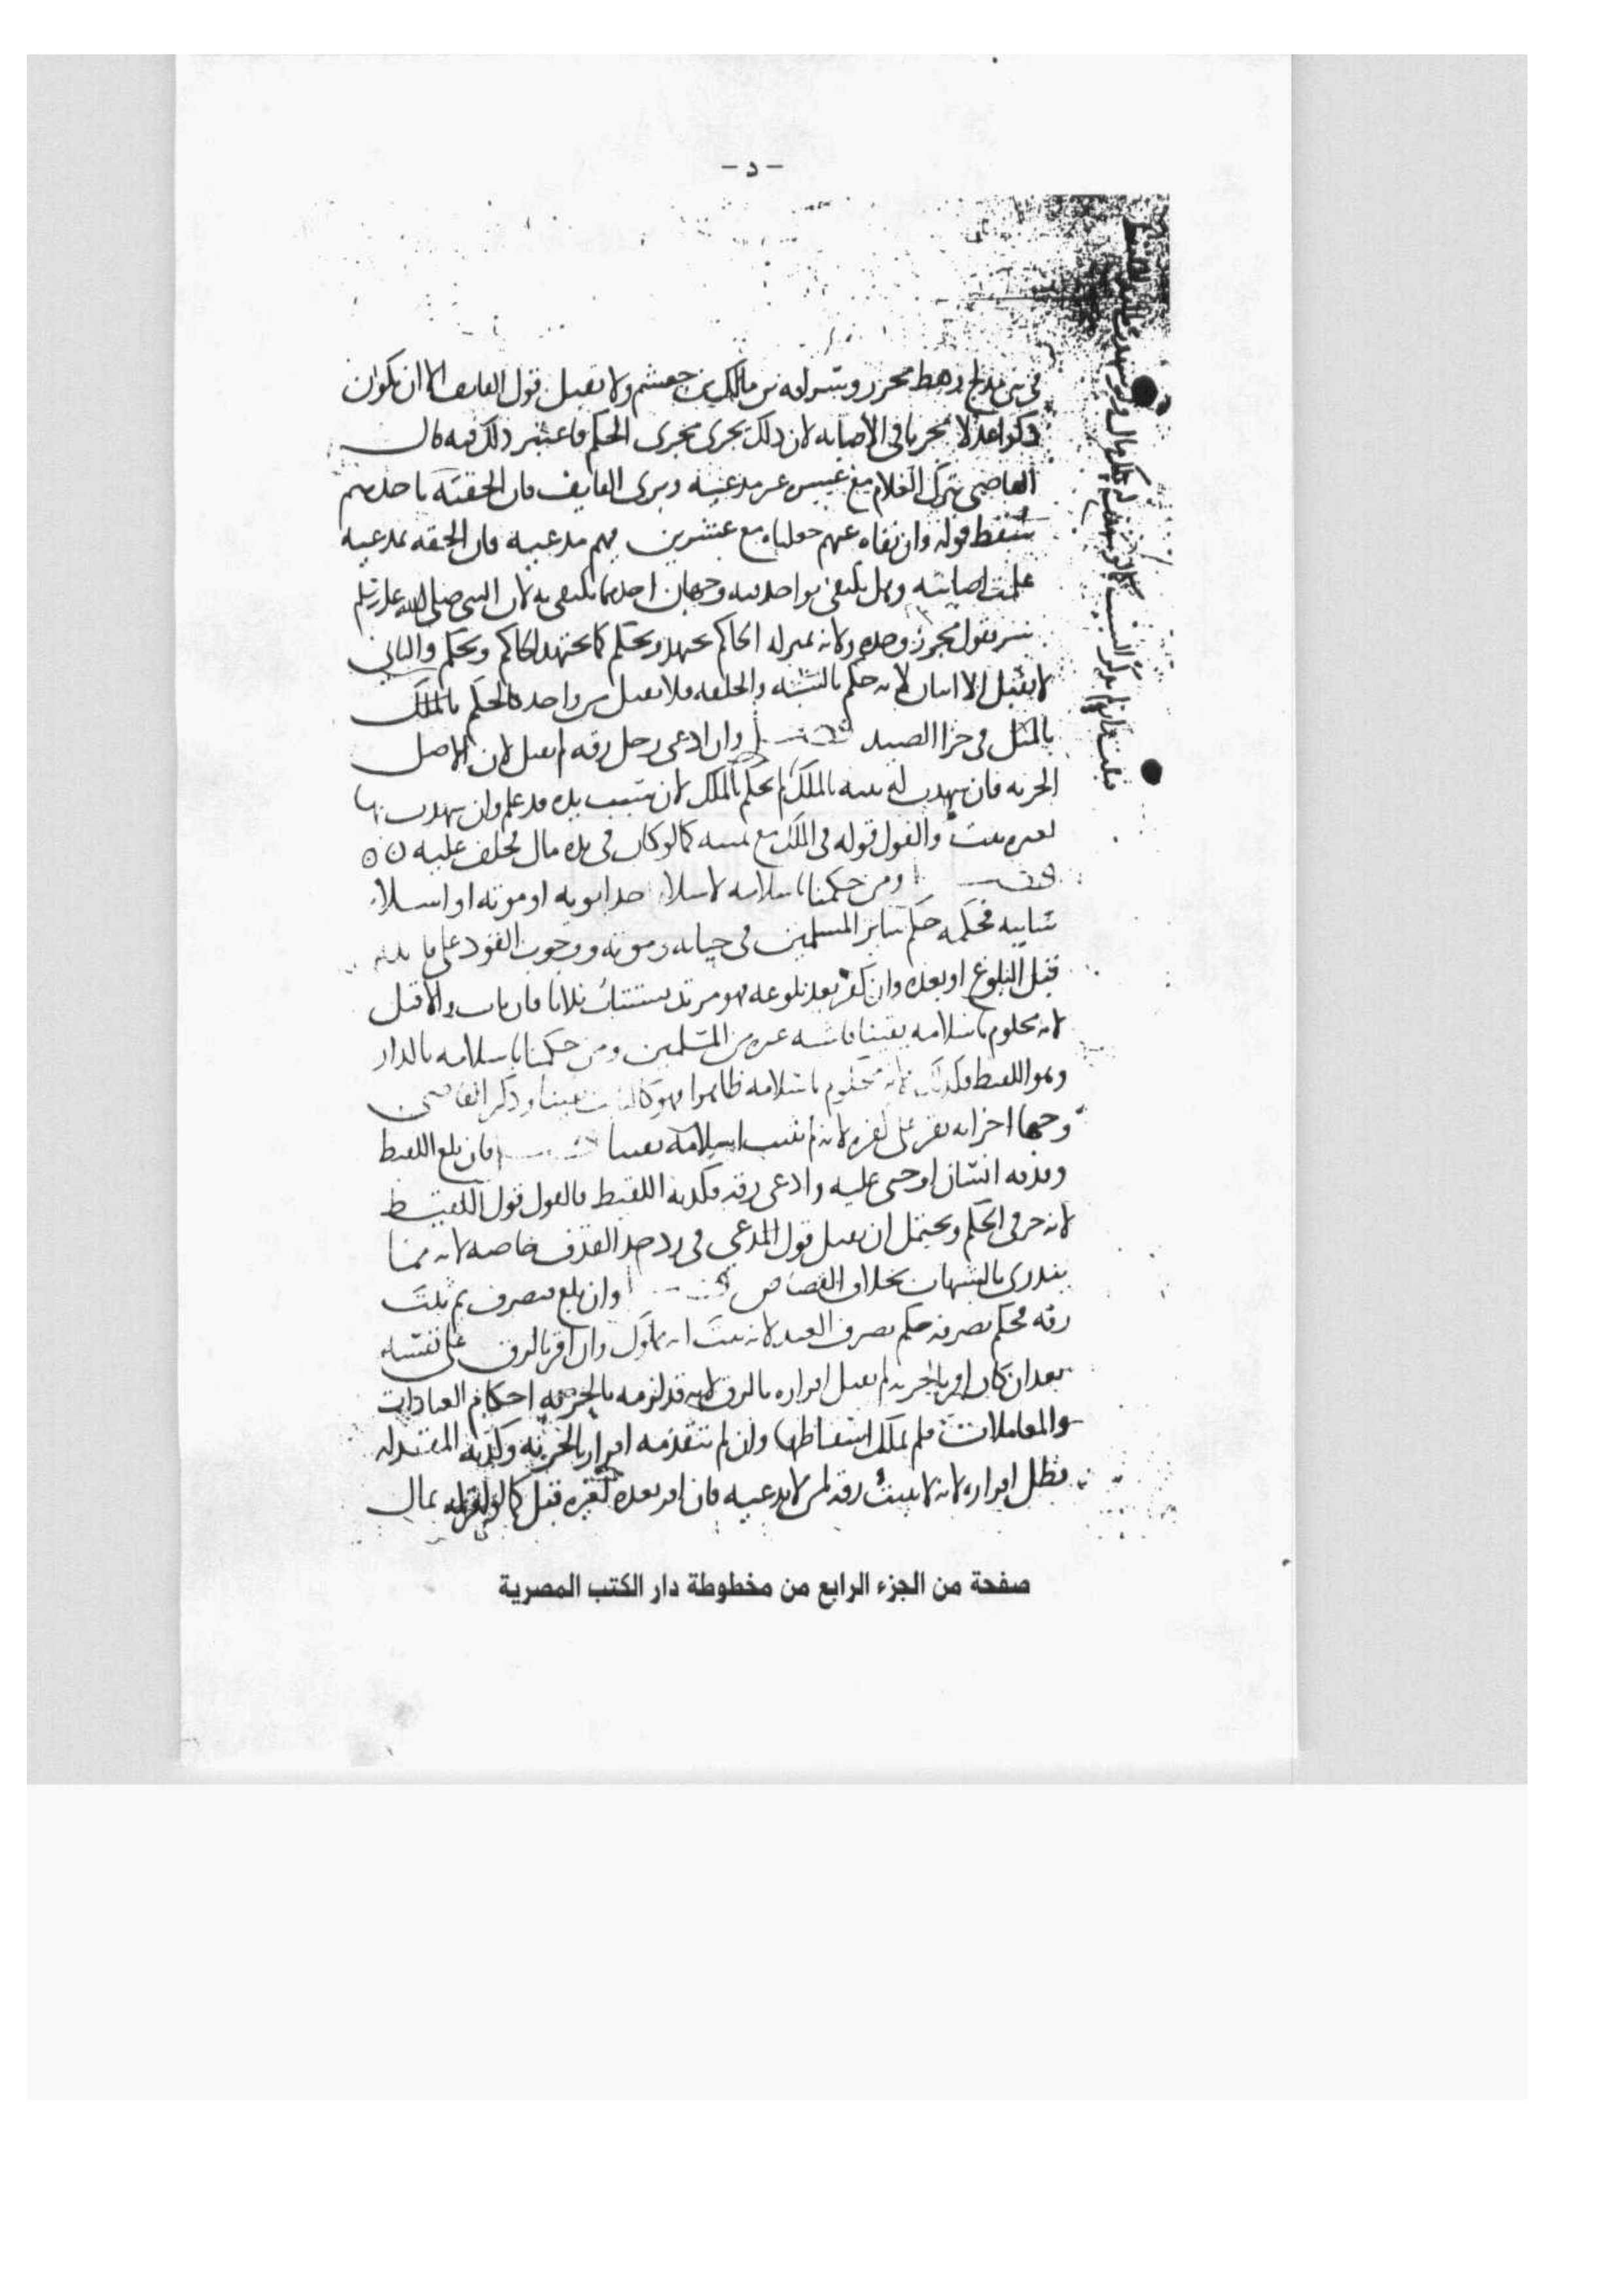 - د -
في بني مدلج رهط مجزز وسراقة بن مالك بن جعشم ولا تقبل قول القايف الا ان يكون
ذكرا عدلا مجربا في الاصابه لان ذلك يجري مجرى الحكم فاعتبر ذلك فيه قال
القاضي يترك الغلام مع عشره غير مدعيه ويرى القايف فان الحقه باحدهم
سقط قوله وان نفاه عنهم جعلناه مع عشرين فيهم مدعيه فان الحقه بمدعيه
علمت اصابته وهل يكتفى بواحد فيه وجهان احدهما يكتفى به لان النبي صلى الله عليه وسلم
سر بقول مجزز وحده ولانه بمنزله الحاكم يجتهد ويحكم كما يجتهد الحاكم ويحكم والثاني
لا يقبل الا اثنان لانه حكم بالشبه والخلقه فلا يقبل من واحد كالحكم
بالمثل في جزا الصيد فصل وان ادعى رجل رقه لم يقبل لان الاصل
الحريه فان شهدت له بينه بالملك لم يحكم بالملك لان سبب يده قد علم وان شهدت بها
لغيره ثبت والقول قوله في الملك مع يمينه كما لو كان في يده مال فحلف عليه
فصل ومن حكمنا باسلامه لاسلام احد ابويه او موته او اسلام
سابيه فحكمه حكم سائر المسلمين في حياته وموته ووجوب القود على قاتله
قبل البلوغ او بعده وان كفر بعد بلوغه فهو مرتد يستتاب ثلاثا فان تاب والا قتل
لانه محكوم باسلامه يقينا فاشبه غيره من المسلمين ومن حكمنا باسلامه بالدار
وهو اللقيط فكذلك لانه محكوم باسلامه ظاهرا فهو كالثابت يقينا وذكر القاضي
وجها اخر انه يقر على كفره لانه لم يثبت اسلامه يقينا فصل فان بلغ اللقيط
وقذفه انسان او جنى عليه وادعى رقه فكذبه اللقيط فالقول قول اللقيط
لانه حر في الحكم ويحتمل ان يقبل قول المدعي في رد حد القذف خاصه لانه مما
يندرئ بالشبهات بخلاف القصاص فصل وان بلغ فتصرف ثم ثبت
رقه فحكم تصرفه حكم تصرف العبد لانه ثبت انه مملوك وان اقر بالرق على نفسه
بعد ان كان اقر بالحريه لم يقبل اقراره بالرق لانه قد لزمه بالحريه احكام العبادات
والمعاملات فلم يملك اسقاطها وان لم يتقدمه اقرار بالحريه وكذبه المقر له
بطل اقراره لانه لا يثبت رقه لمن لا يدعيه فان اقر بعده لغيره قبل كما لو اقر له بمال
صفحة من الجزء الرابع من مخطوطة دار الكتب المصرية